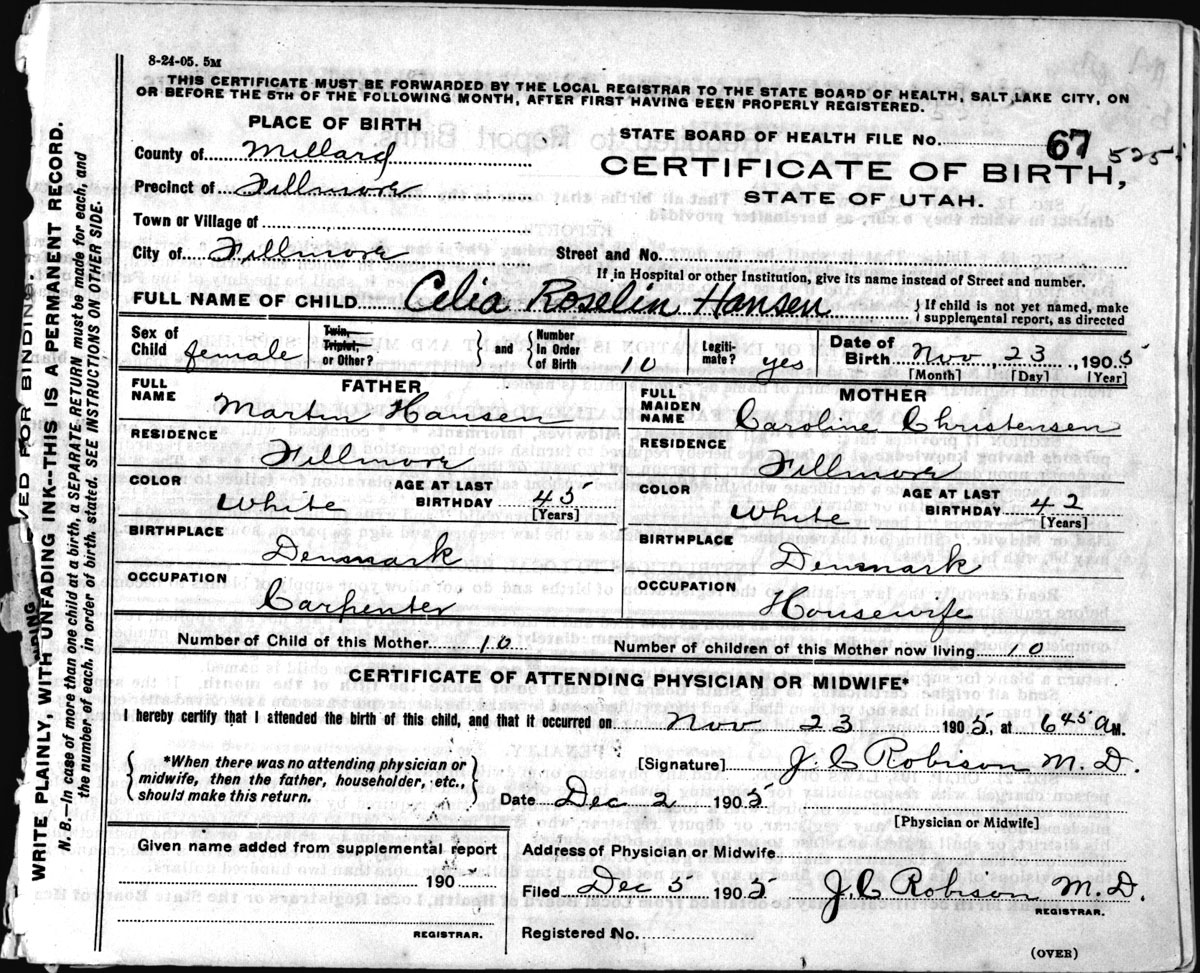 8-24-05. 5M
THIS CERTIFICATE MUST BE FORWARDED BY THE LOCAL REGISTRAR TO THE STATE BOARD OF HEALTH, SALT LAKE CITY, ON
OR BEFORE THE 5TH OF THE FOLLOWING MONTH, AFTER FIRST HAVING BEEN PROPERLY REGISTERED.
PLACE OF BIRTH
County of Millard
Precinct of Fillmore
Town or Village of
City of Fillmore
STATE BOARD OF HEALTH FILE No. 67 525
CERTIFICATE OF BIRTH,
STATE OF UTAH.
Street and No.
If in Hospital or other Institution, give its name instead of Street and number.
FULL NAME OF CHILD Celia Roselin Hansen
If child is not yet named, make
supplemental report, as directed
Sex of Child female
Twin, Triplet, or Other?
and Number In Order of Birth 10
Legitimate? yes
Date of Birth Nov 23, 1905
[Month] [Day] [Year]
FATHER
FULL NAME Martin Hansen
RESIDENCE Fillmore
COLOR White
AGE AT LAST BIRTHDAY 45
[Years]
BIRTHPLACE Denmark
OCCUPATION Carpenter
MOTHER
FULL MAIDEN NAME Caroline Christensen
RESIDENCE Fillmore
COLOR White
AGE AT LAST BIRTHDAY 42
[Years]
BIRTHPLACE Denmark
OCCUPATION Housewife
Number of Child of this Mother 10
Number of children of this Mother now living 10
CERTIFICATE OF ATTENDING PHYSICIAN OR MIDWIFE*
I hereby certify that I attended the birth of this child, and that it occurred on Nov 23 1905, at 6 45 AM.
*When there was no attending physician or
midwife, then the father, householder, etc.,
should make this return.
[Signature] J. C Robison M. D.
Date Dec 2 1905
[Physician or Midwife]
Given name added from supplemental report
190
REGISTRAR.
Address of Physician or Midwife
Filed Dec 3 1905 J. C Robison M. D.
REGISTRAR.
Registered No.
(OVER)
WRITE PLAINLY, WITH UNFADING INK--THIS IS A PERMANENT RECORD.
N. B.—In case of more than one child at a birth, a SEPARATE RETURN must be made for each, and
the number of each, in order of birth, stated. SEE INSTRUCTIONS ON OTHER SIDE.
VED FOR BINDING